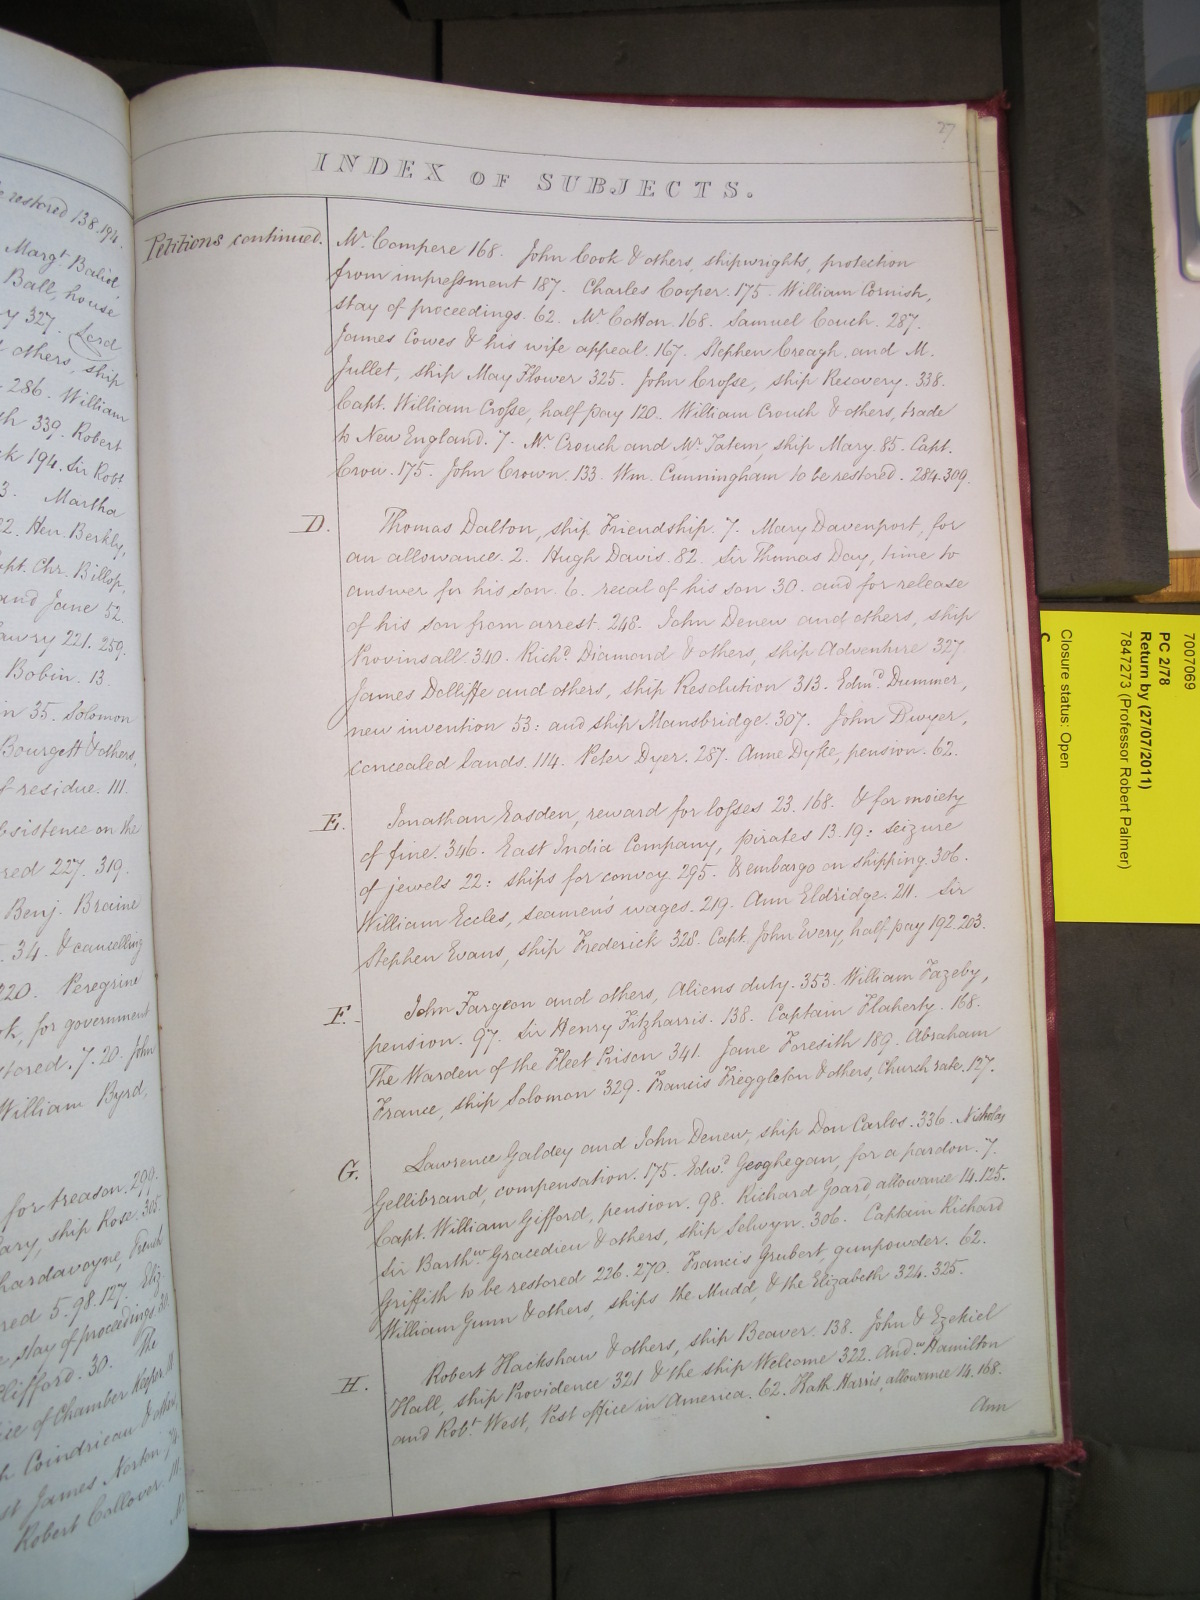 e restored 138.194.
Margt. Baliol,
Ball, house
y 327. Lord
others, ship
286. William
339. Robert
k 194. Sir Robt
3. Martha
22. Hen. Berkly,
Capt. Chr. Billop,
and Jane 52.
221. 259.
Bobin. 13.
in 35. Solomon
Bourgett & others,
of residue. 111.
subsistence on the
red 227. 319.
Benj. Braine
34. & cancelling
220. Peregrine
for government
stored. 7. 20. John
William Byrd,
for treason. 299.
ary, ship Rose. 305.
hardavoyne, French
red 5. 98. 127. Eliz.
stay of proceedings 30.
Clifford. 30. The
ice of Chamber Keeper 11
h Coindrieau & others,
st James Norton
Robert Collover. 111.
27
INDEX OF SUBJECTS.
Petitions continued.
Mr. Compere 168. John Cook & others, shipwrights, protection
from impressment 187. Charles Cooper. 175. William Cornish,
stay of proceedings. 62. Mr. Cotton. 168. Samuel Couch. 287.
James Cowes & his wife appeal. 167. Stephen Creagh, and M.
Jullet, ship May Flower 325. John Crosse, ship Recovery. 338.
Capt. William Crosse, half pay 120. William Crouch & others, trade
to New England. 7. Mr. Crouch and Mr. Tatem, ship Mary. 85. Capt.
Crow. 175. John Crown. 133. Wm. Cunningham to be restored. 284. 309.
D. Thomas Dalton, ship Friendship. 7. Mary Davenport, for
an allowance. 2. Hugh Davis. 82. Sir Thomas Day, time to
answer for his son. 6. recal of his son 30. and for release
of his son from arrest. 248. John Denew and others, ship
Provinsall. 340. Richd. Diamond & others, ship Adventure 327
James Dolliffe and others, ship Resolution 313. Edmd. Dummer,
new invention 53: and ship Mansbridge. 307. John Dwyer,
concealed Lands. 114. Peter Dyer. 287. Anne Dyke, pension. 62.
E. Jonathan Easden, reward for losses 23. 168. & for moiety
of fine. 346. East India Company, pirates 13. 19: seizure
of jewels 22: ships for convoy 295. & embargo on shipping. 306.
William Eccles, seamen's wages. 219. Ann Eldridge. 211. Sir
Stephen Evans, ship Frederick 328. Capt. John Every, half pay 192. 203.
F. John Fargeon and others, Aliens duty. 353. William Fazeby,
pension. 97. Sir Henry Fitzharris. 138. Captain Flaherty. 168.
The Warden of the Fleet Prison 341. Jane Foresith 189. Abraham
France, ship Solomon 329. Francis Freggleton & others, Church rate. 127.
G. Lawrence Galdey and John Denew, ship Don Carlos. 336. Nicholas
Gellibrand, compensation. 175. Edwd. Geoghegan, for a pardon. 7.
Capt. William Gifford, pension. 98. Richard Goard, allowance 14. 125.
Sir Barthw. Gracedieu & others, ship Selwyn. 306. Captain Richard
Griffith to be restored 226. 270. Francis Grubert, gunpowder. 62.
William Gunn & others, ships the Mudd, & the Elizabeth 324. 325.
H. Robert Hackshaw & others, ship Beaver. 138. John & Ezekiel
Hall, ship Providence 321 & the ship Welcome 322. Andw. Hamilton
and Robt. West, Post office in America. 62. Kath. Harris, allowance 14. 168.
Ann
7007069
PC 2/78
Return by (27/07/2011)
7847273 (Professor Robert Palmer)
Closure status: Open